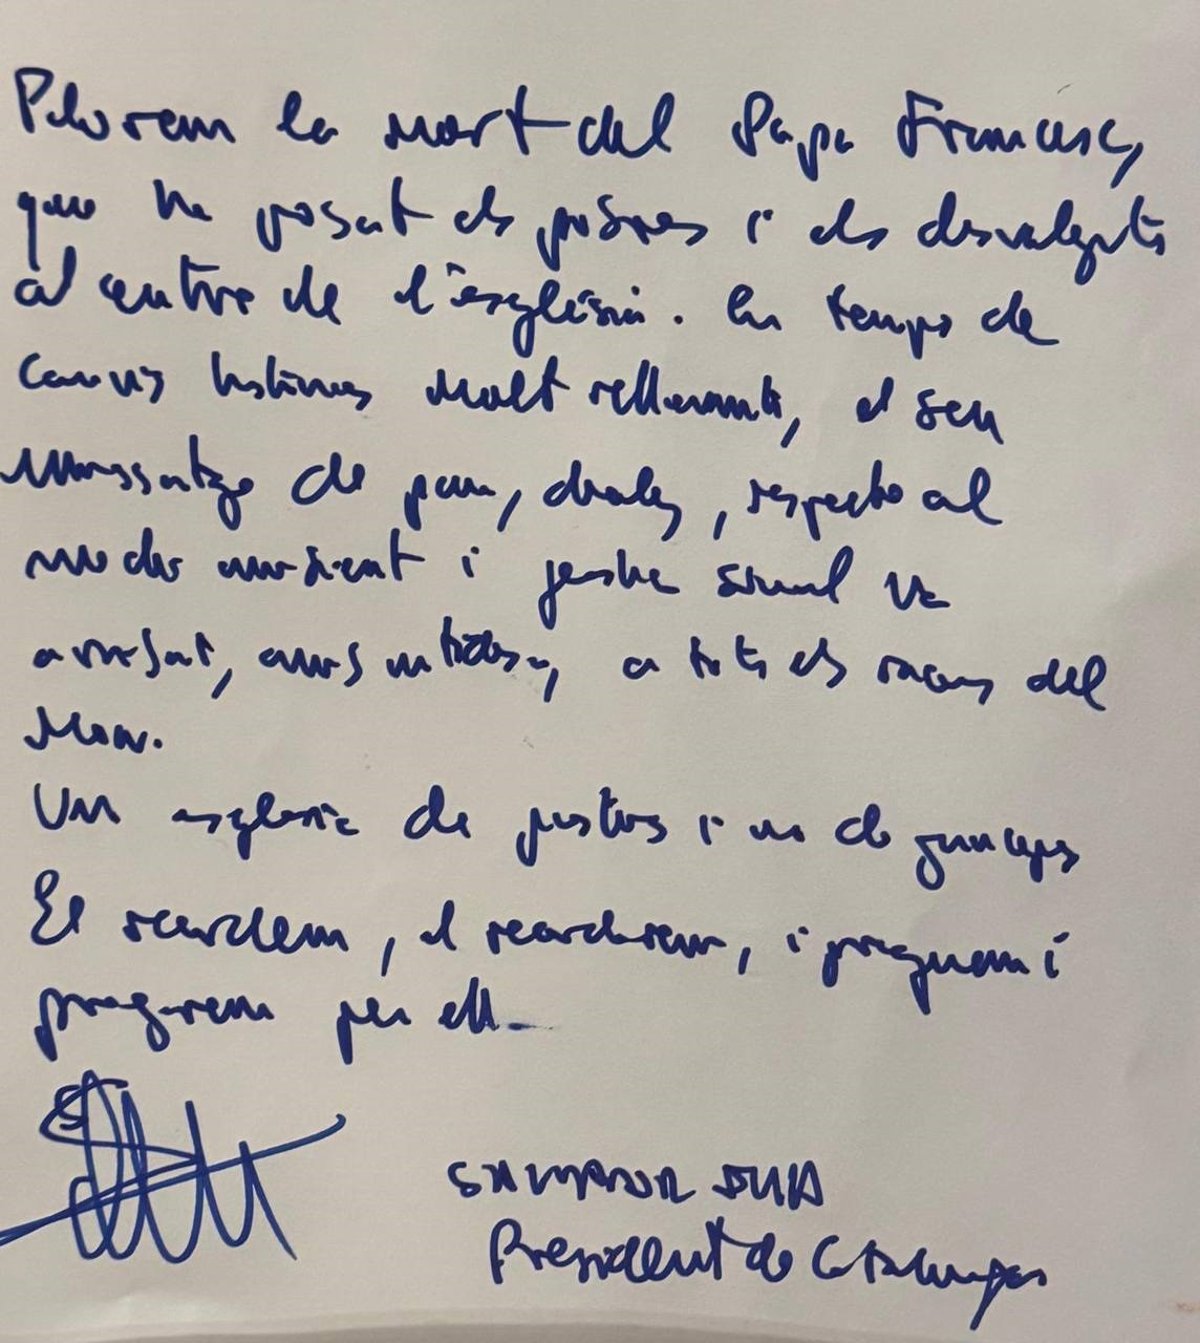 Plorem la mort del Papa Francesc,
que ha posat els pobres i els desvalguts
al centre de l'església. En temps de
canvis històrics molt rellevants, el seu
missatge de pau, diàleg, respecte al
medi ambient i justícia social va
arribat, amb , a tots els racons del
món.
Un església de justos i no de
El recordem, el recordarem, i preguem i
pregarem per ell.
SALVADOR ILLA
President de Catalunya